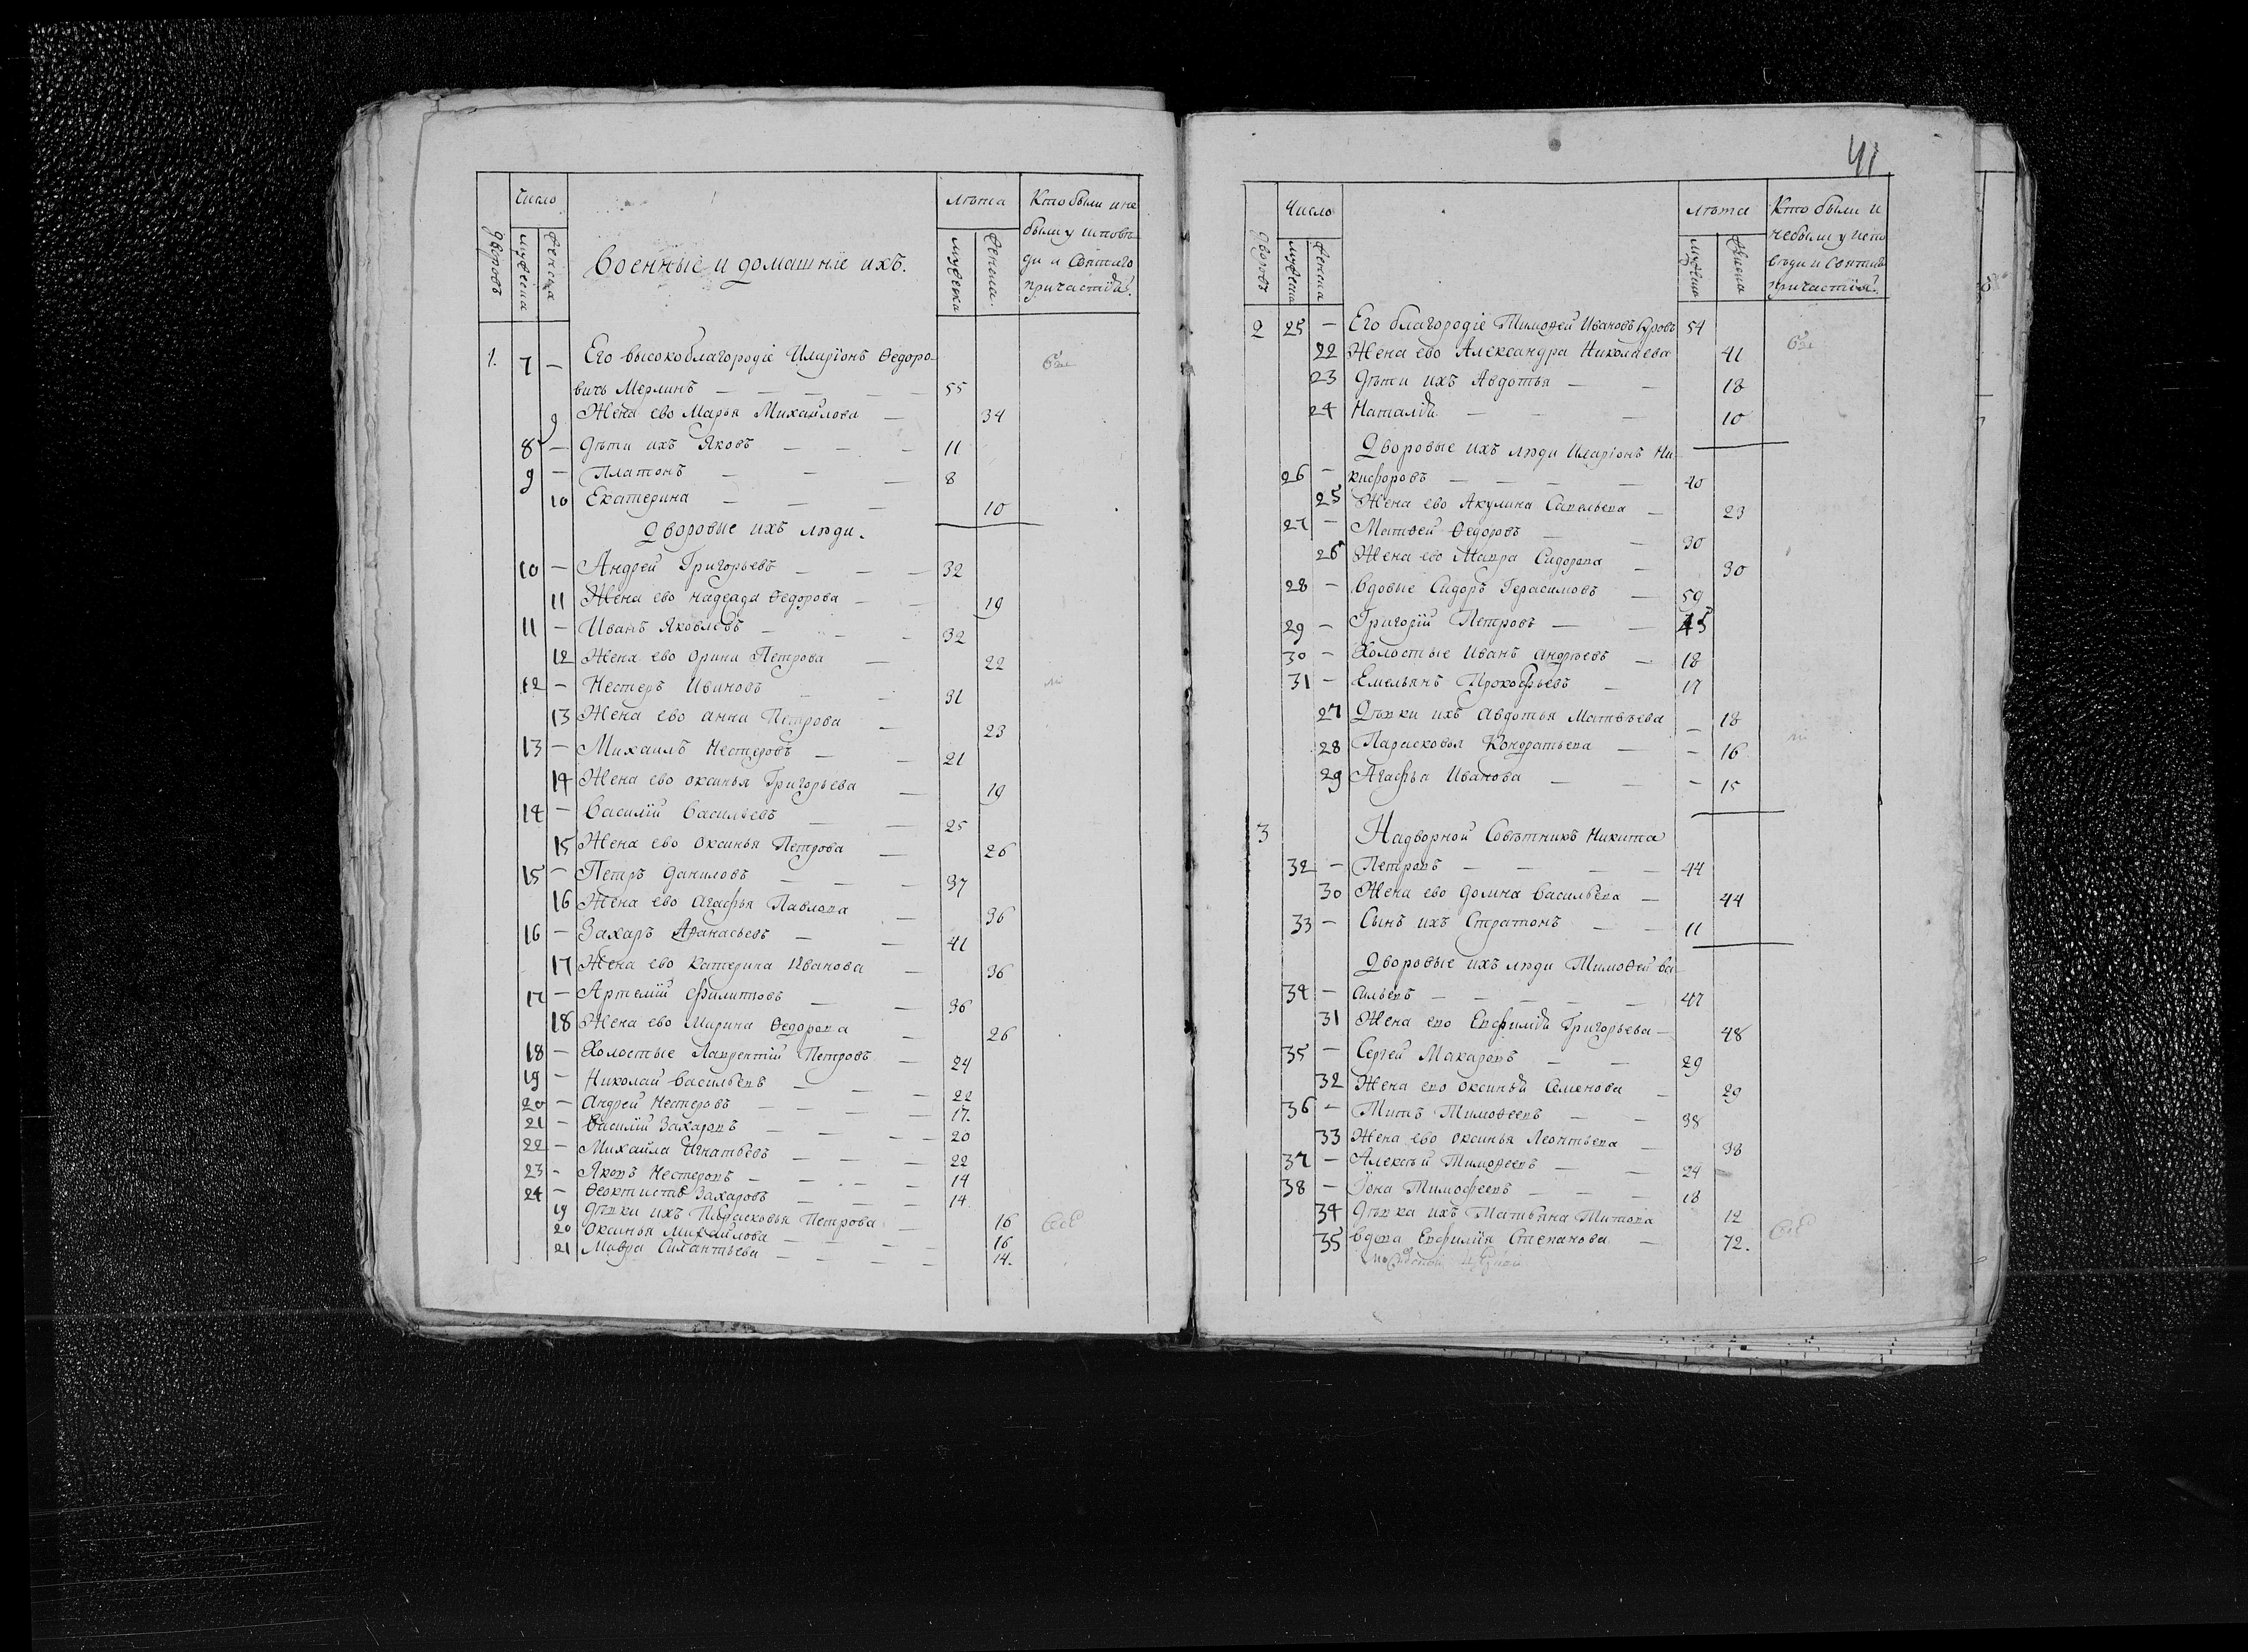 Число
лѣта
Кто были и не
были у исповѣ
ди и Святаго
причастія.
дворовъ
мужеска
женска
Военные и домашніе ихъ.
мужеска
женска
1. 7 — Его высокоблагородіе Иларіонъ Ѳедоро
вичь Мерлинъ — 55
9 Жена ево Марья Михайлова — 34
8 — Дѣти ихъ Яковъ — 11
9 — Платонъ — 8
10 Екатерина — 10
Дворовые ихъ люди.
10 — Андрей Григорьевъ — 32
11 Жена ево Надежда Ѳедорова — 19
11 — Иванъ Яковлевъ — 32
12 Жена ево Орина Петрова — 22
12 — Нестеръ Ивановъ 31
13 Жена ево Анна Петрова — 23
13 — Михаилъ Нестеровъ — 21
14 Жена ево Оксинья Григорьева — 19
14 — Василій Васильевъ — 25
15 Жена ево Оксинья Петрова — 26
15 — Петръ Даниловъ — 37
16 Жена ево Агафья Павлова — 36
16 — Захаръ Аѳанасьевъ — 41
17 Жена ево Катерина Иванова — 36
17 — Артемій Филиповъ — 36
18 Жена ево Марина Ѳедорова — 26
18 — Холостые Лаврентій Петровъ — 24
19 — Николай Васильевъ — 22
20 — Андрей Нестеровъ — 17.
21 — Василій Захаровъ — 20
22 — Михайла Игнатьевъ — 22
23 - Яковъ Нестеровъ — 14
24 — Ѳеоктистъ Захаровъ — 14
19 Дѣвки ихъ Парасковья Петрова — 16
20 Оксинья Михайлова — 16
21 Мавра Силантьева — 14.
41
Число
лѣта
Кто были и
небыли у испо
вѣди и Святаго
причастія.
дворовъ
мужеска
женска
мужеска
женска
2 25 — Его благородіе Тимоѳей Ивановъ 54
22 Жена ево Александра Николаева 41
23 Дѣти ихъ Авдотья — 18
24 Наталія — 10
Дворовые ихъ люди Иларіонъ Ни
26 — кифоровъ — 40
25 Жена ево Акулина Савельева — 23
27 — Матѳей Ѳедоровъ — 30
26 Жена ево Мавра Сидорова — 30
28 — Вдовые Сидоръ Герасимовъ — 59
29 — Григорій Петровъ — 45
30 — Холостые Иванъ Андреевъ — 18
31 — Емельянъ Прокофьевъ — 17
27 Дѣвки ихъ Авдотья Матвѣева — 18
28 Парасковья Кондратьева — 16
29 Агафья Иванова — 15
3 Надворной Совѣтникъ Никита
32 — Петровъ — 44
30 Жена ево Домна Васильева — 44
33 — Сынъ ихъ Стратонъ — 11
Дворовые ихъ люди Тимоѳей Ва
34 — сильевъ — 47
31 Жена ево Евфимія Григорьева — 48
35 — Сергей Макаровъ — 29
32 Жена ево Оксинья Семенова — 29
36 — Титъ Тимоѳеевъ — 38
33 Жена ево Оксинья Леонтьева — 38
37 — Алексѣй Тимоѳеевъ — 24
38 — Іона Тимофеевъ — 18
34 Дѣвка ихъ Татьяна Титова 12
35 Вдова Евфимія Степанова — 72.